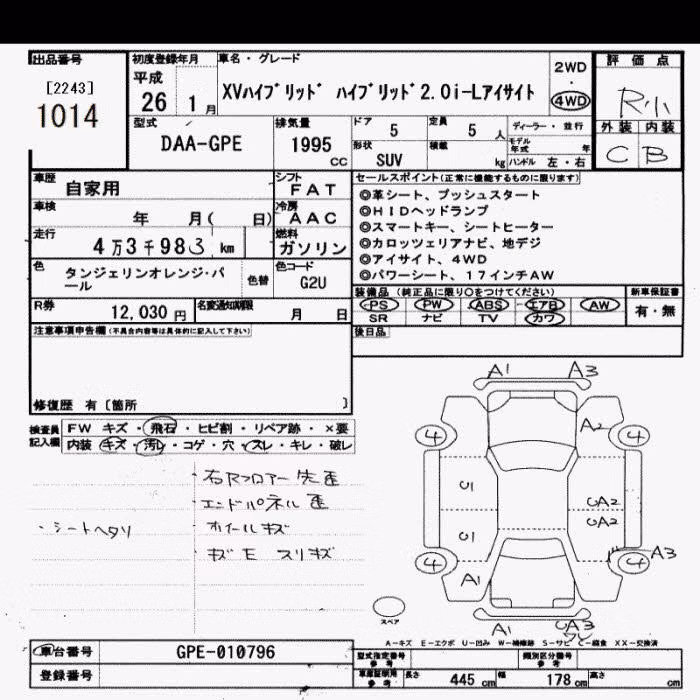 出品番号
[2243]
1014
初度登録年月
平成
26 1月
車名・グレード
XVハイブリッド ハイブリッド2.0i-Lアイサイト
2WD
・
4WD
評価点
R小
外装 内装
C B
型式
DAA-GPE
排気量
1995
CC
ドア 5
定員 5 人
形状
SUV
積載
kg
ディーラー・並行
モデル年式 年
ハンドル 左・右
車歴 自家用
シフト
FAT
車検 年 月( 日)
冷房
AAC
走行 4万3千983km
燃料
ガソリン
色 タンジェリンオレンジ・パール
色替
色コード
G2U
R券 12,030円
名変通知期限
月 日
セールスポイント(正常に機能するものに限ります)
◎革シート、プッシュスタート
◎HIDヘッドランプ
◎スマートキー、シートヒーター
◎カロッツェリアナビ、地デジ
◎アイサイト、4WD
◎パワーシート、17インチAW
装備品(純正品に限り○をつけてください)
PS PW ABS エアB AW
SR ナビ TV カワ
新車保証書
有・無
後日品
注意事項申告欄(不具合内容等は具体的に記入して下さい)
修復歴 有〔箇所 〕
検査員記入欄
FW キズ・飛石・ヒビ割・リペア跡・×要
内装 キズ・汚レ・コゲ・穴・スレ・キレ・破レ
右Rフロアー先歪
エンドパネル歪
・シートヘタリ
ホイールキズ
キズE スリキズ
A1 A3
A2
4 4
U1
UA2
UA2
U1
4 4
A3
A1
A1
UA3
スペア
A-キズ E-エクボ U-凹み W-補修跡 S-サビ C-腐食 XX-交換済
車台番号 GPE-010796
登録番号
型式指定番号
参考
類別区分番号
参考
車庫証明用
参考
長さ 445 cm
幅 178 cm
高さ cm